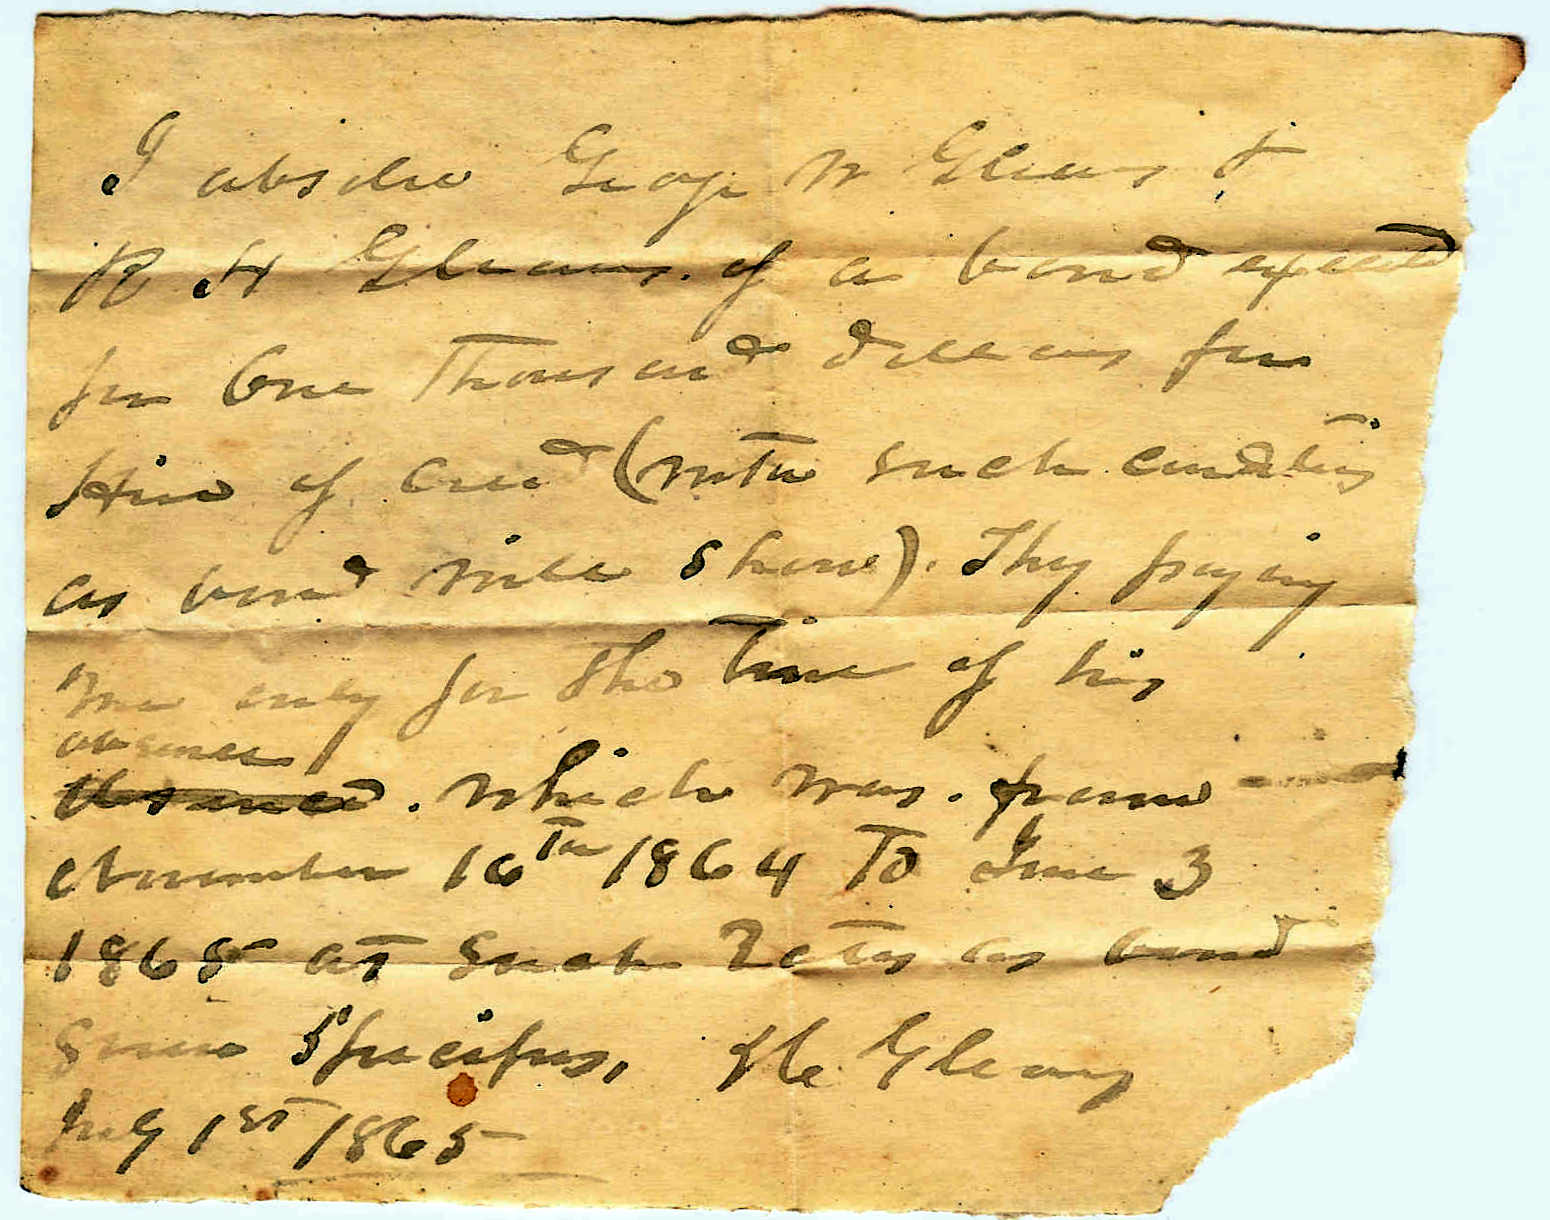 I absolve George W Gleaves &
R H Gleaves. of a bond execut
for One Thousand dollars for
Hire of (with such conditions
as bond will show). They paying
me only for the time of his
absence
absence. which was. from
November 16th 1864 To June 3
1865 at such Rates as bond
Specifies, Gleaves
July 1st 1865